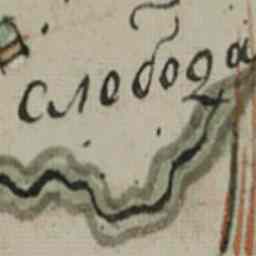 слобода